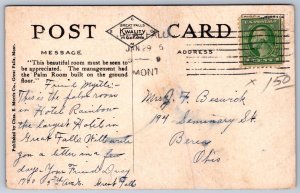 POST CARD
GREAT FALLS
KWALITY
MONT
MESSAGE
ADDRESS
"This beautiful room must be seen to
be appreciated. The management had
the Palm Room built on the ground
floor."
Friend Myrtle-
This is the palm room
in Hotel Rainbow
the largest Hotel in
Great Falls Will write
you a letter in a few
days. Your Friend
Great Falls
Mrs J F Beswick
194 Seminary St
Berea
Ohio
x 150
Published by Chas. E. Morris, Great Falls, Mont.